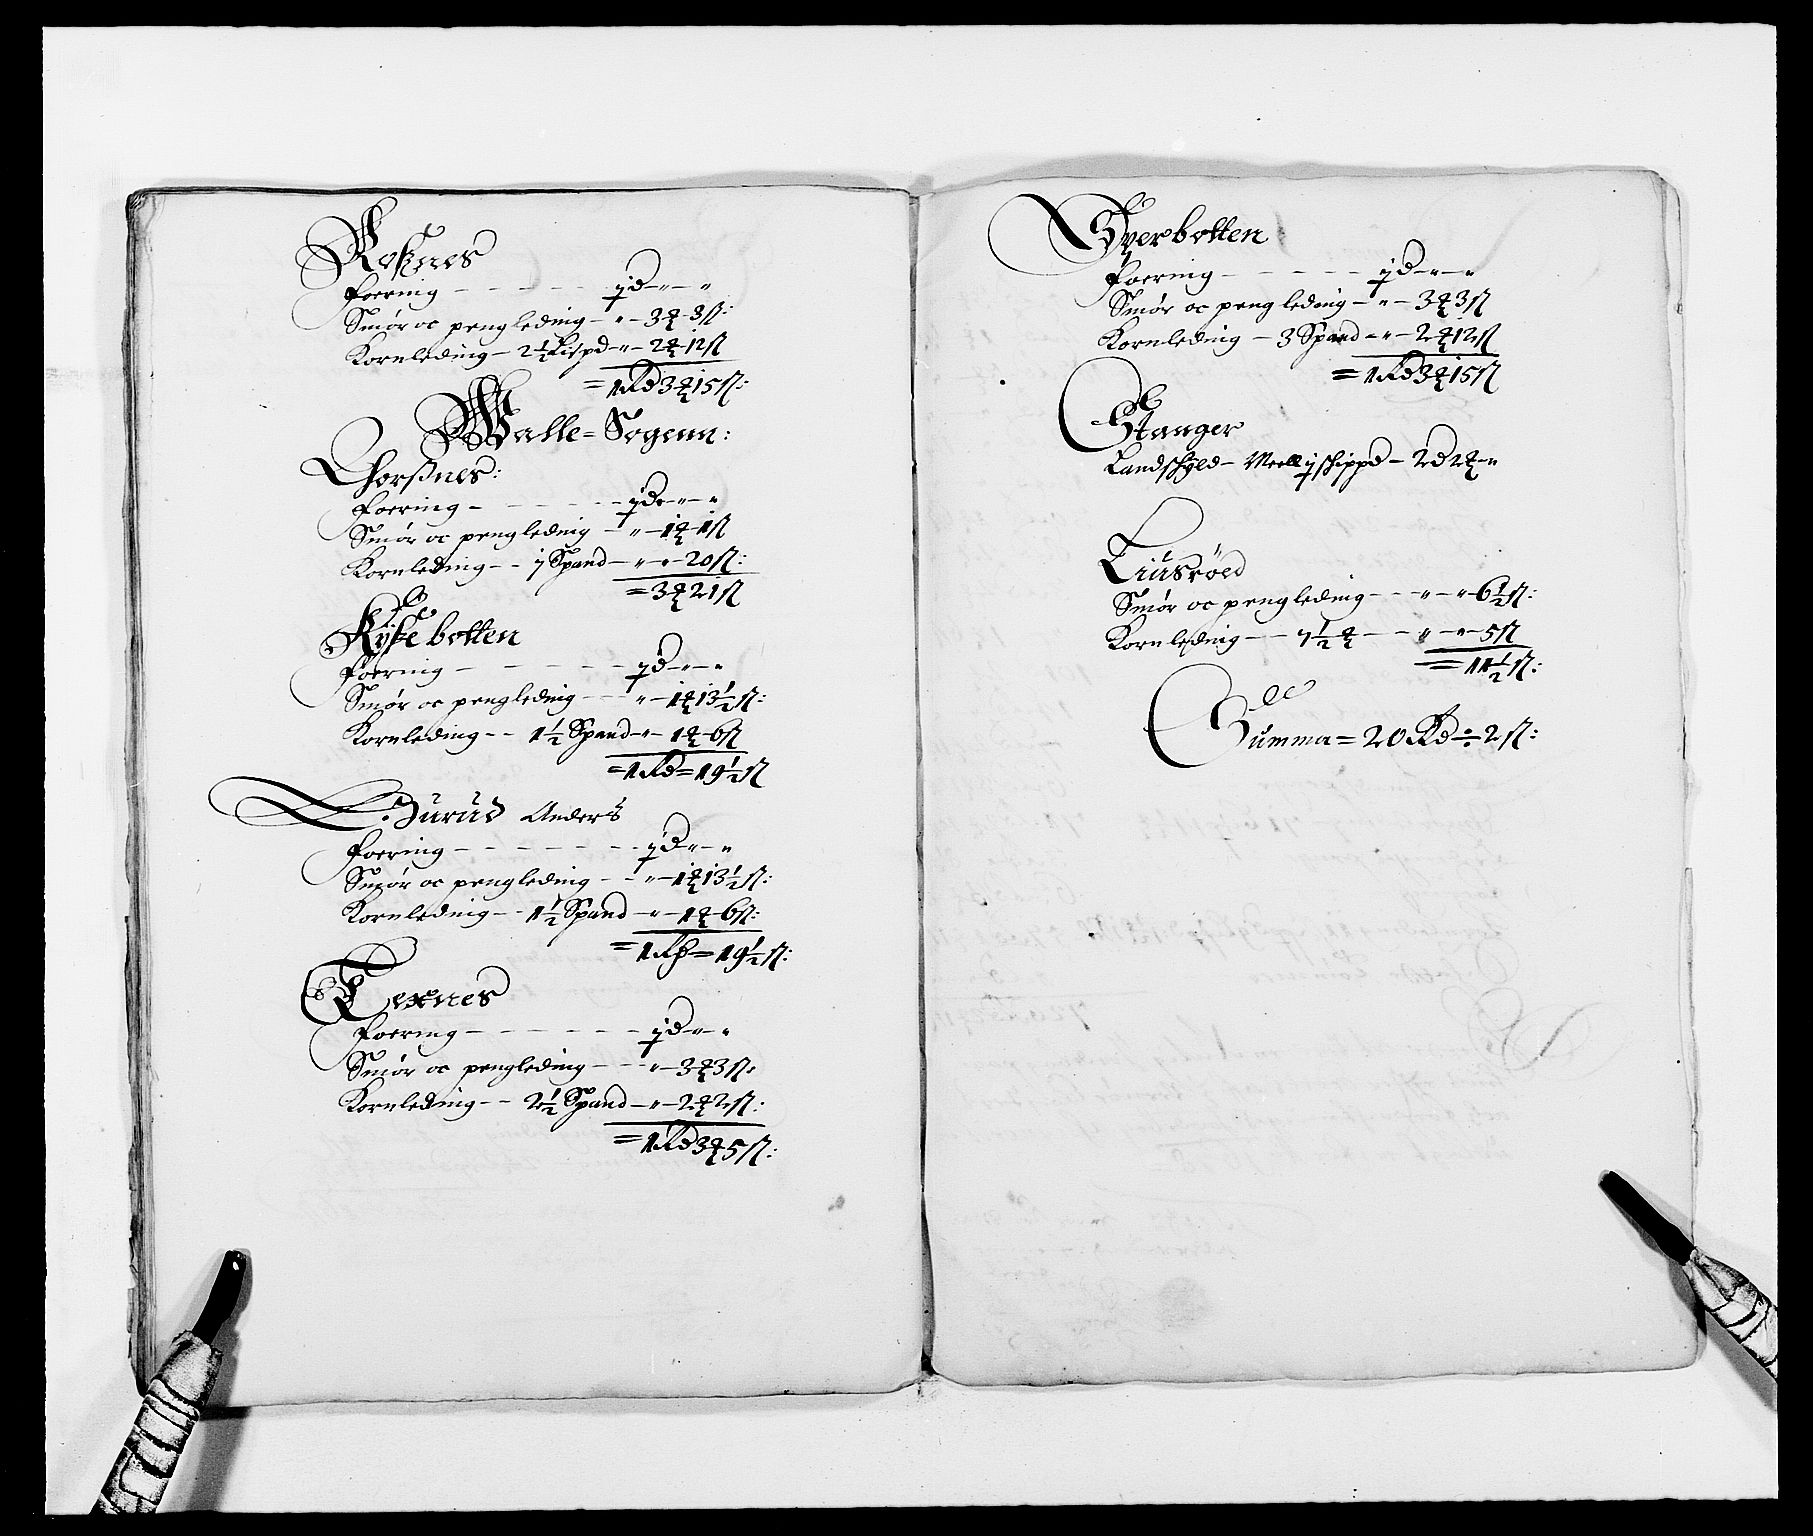 Roßnes
Foering - - - - - - j d - " - "
Smør oc pengleding - " - 3 ℔ - 3 ß:
Kornleding - 2½ Lispd - " - 2 ℔ 12 ß
= 1 Rd 3 ℔ 15 ß:
Walle = Sogenn:
Thorßnes:
Foering - - - - - - j d - " - "
Smør oc pengleding - " - 1 ℔ - 1 ß
Kornleding - - j Spand - " - " - 20 ß:
= 3 ℔ 21 ß
Ryßebotten
Foering - - - - - - j d - " - "
Smør oc pengleding - - " - 1 ℔ 13½ ß:
Kornleding - - 1½ Spand - " - 1 ℔ - 6 ß
= 1 Rd = 19½ ß
Burud Anders
Foering - - - - - - j d - " - "
Smør oc pengleding - - " - 1 ℔ 13½ ß:
Kornleding - - 1½ Spand - " - 1 ℔ 6 ß:
= 1 Rd = 19½ ß:
Texnes
Foering - - - - - - j d - " - "
Smør oc pengleding - - " - 3 ℔ 3 ß:
Kornleding - - 2½ Spand - " - 2 ℔ 2 ß:
= 1 Rd 3 ℔ 5 ß:
Ofverbotten
Foering - - - - - - j d - " - "
Smør oc pengleding - " - 3 ℔ 3 ß
Kornleding - 3 Spand - " - 2 ℔ 12 ß
= 1 Rd 3 ℔ 15 ß
Stanger
Landschyld - Meell j schippd - 2 d 2 ℔ - "
Liusröed
Smør oc pengleding - - " - " - 6½ ß:
Kornleding - - 7½ ℔ - - " - " - 5 ß
= 11½ ß:
Summa = 20 Rd ÷ 2 ß: